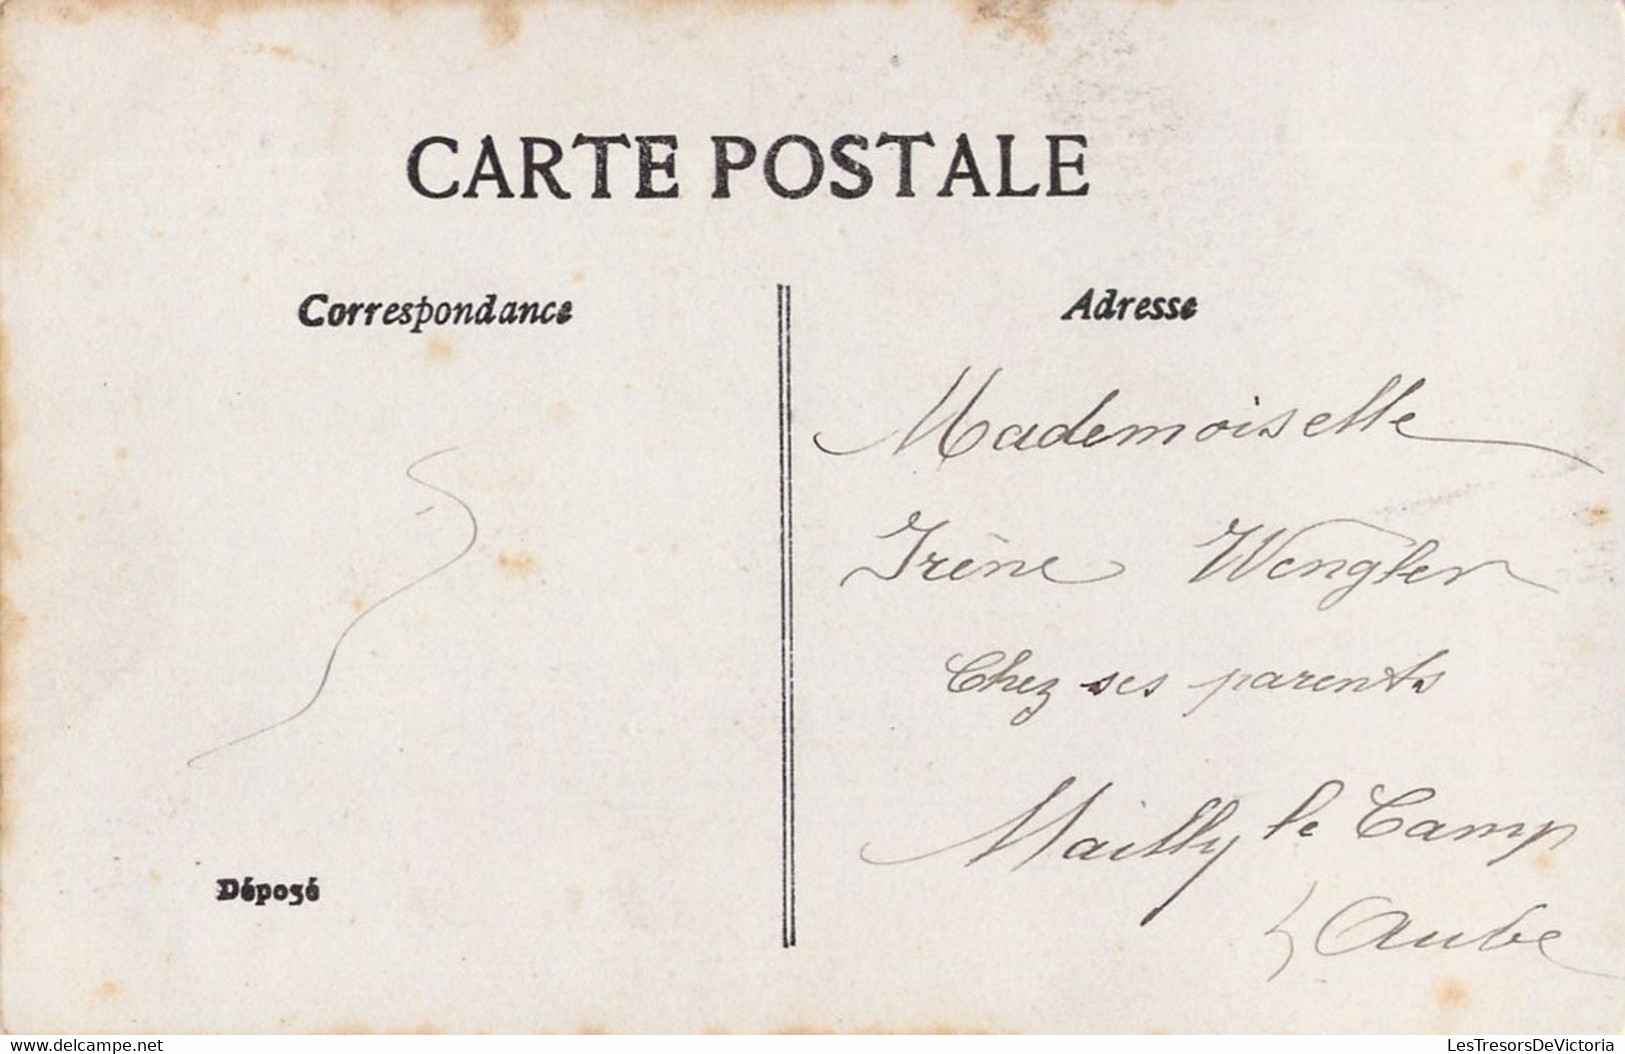 CARTE POSTALE
Correspondance
Adresse
Mademoiselle
Irène Wengler
Chez ses parents
Mailly le Camp
Aube
Déposé
www.delcampe.net
LesTresorsDeVictoria